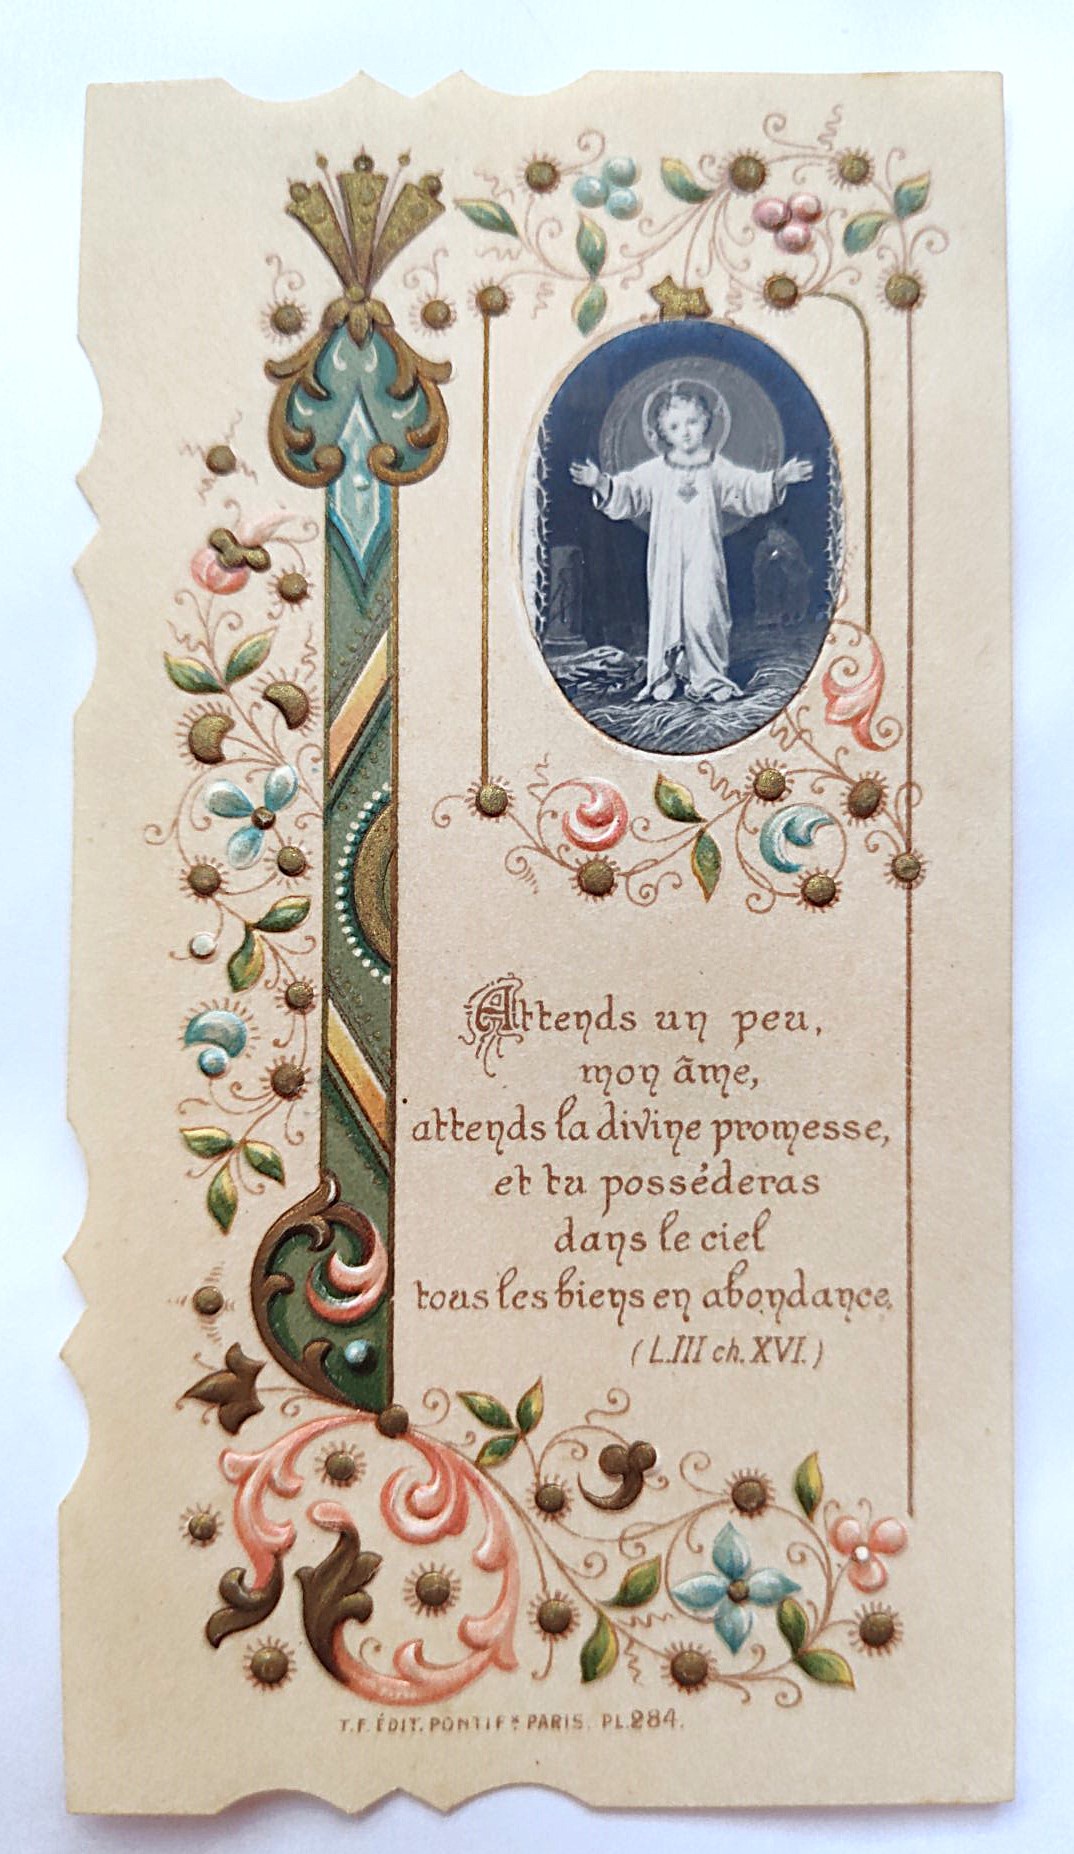 Attends un peu,
mon âme,
attends la divine promesse,
et tu posséderas
dans le ciel
tous les biens en abondance.
(L.III ch. XVI.)
T.F. ÉDIT. PONTIFX PARIS. PL.284.